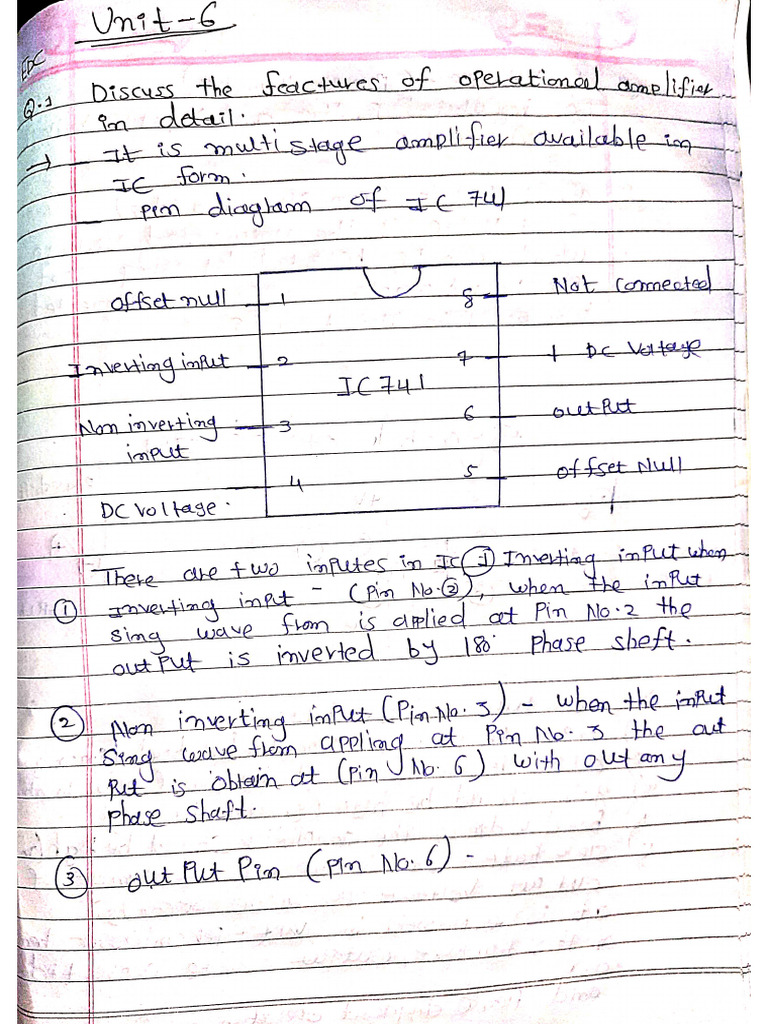 Unit-6
EDC
Q.1 Discuss the feactures of operational amplifier
in detail.
→ It is multistage amplifier available in
IC form.
Pin diagram of IC 741
offset null 1 8 Not Connected
Inverting input 2 7 + DC Voltage
IC 741
Non inverting 3 6 outPut
input
4 5 offset Null
DC Voltage.
There are two inputes in IC 1 Inverting input when
① Inverting input - (Pin No.②), when the input
Sing wave from is applied at Pin No.2 the
outPut is inverted by 180° Phase sheft.
② Non inverting input (Pin No. 3) - when the input
Sing wave from appling at Pin No. 3 the out
Put is obtain at (Pin No. 6) with out any
Phase shaft.
③ outPut Pin (Pin No. 6) -